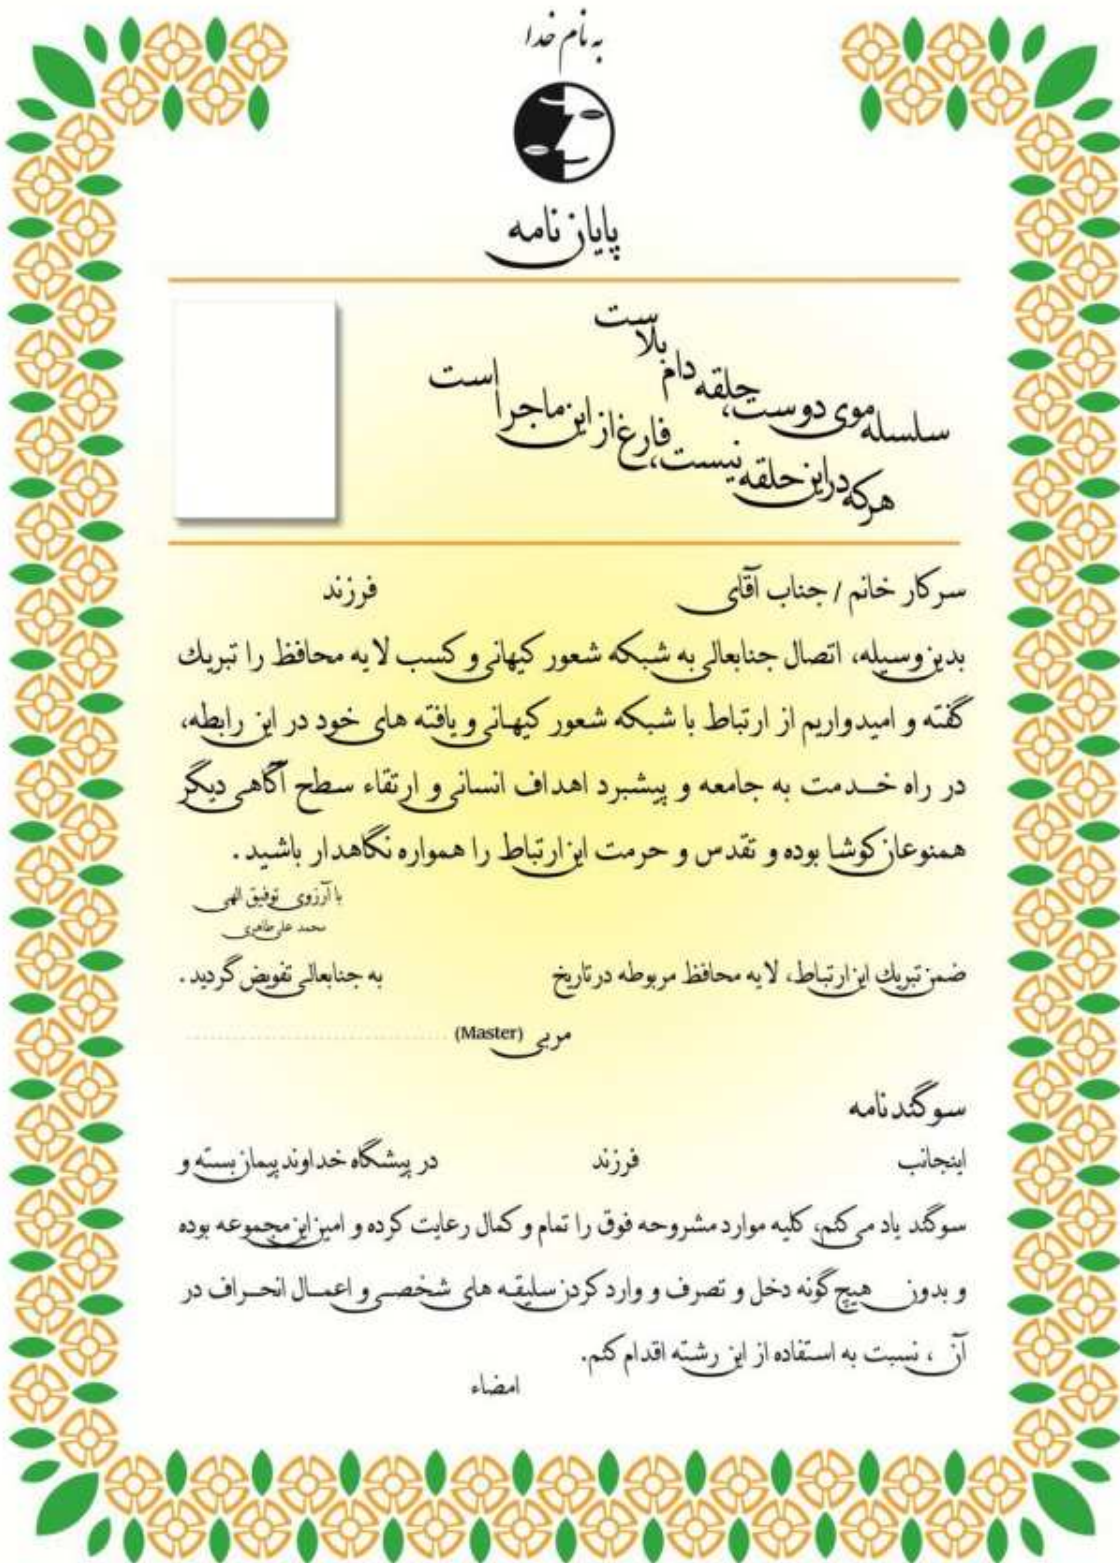 به نام خدا
پایان نامه
سلسله موی دوست، حلقه دام بلاست
هر که در این حلقه نیست، فارغ از این ماجرا است
سرکار خانم / جناب آقای فرزند
بدین وسیله، اتصال جنابعالی به شبکه شعور کیهانی و کسب لایه محافظ را تبریك
گفته و امیدواریم از ارتباط با شبکه شعور کیهانی و یافته های خود در این رابطه،
در راه خدمت به جامعه و پیشبرد اهداف انسانی و ارتقاء سطح آگاهی دیگر
همنوعان کوشا بوده و تقدس و حرمت این ارتباط را همواره نگاهدار باشید.
با آرزوی توفیق الهی
محمد علی طاهری
ضمن تبریك این ارتباط، لایه محافظ مربوطه در تاریخ به جنابعالی تفویض گردید.
مربی (Master)
سوگندنامه
اینجانب فرزند در پیشگاه خداوند پیمان بسته و
سوگند یاد می کنم، کلیه موارد مشروحه فوق را تمام و کمال رعایت کرده و امین این مجموعه بوده
و بدون هیچ گونه دخل و تصرف و وارد کردن سلیقه های شخصی و اعمال انحراف در
آن، نسبت به استفاده از این رشته اقدام کنم.
امضاء